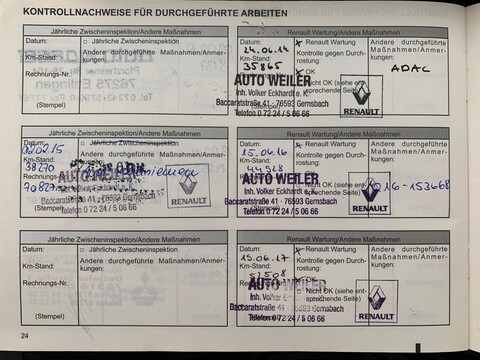 KONTROLLNACHWEISE FÜR DURCHGEFÜHRTE ARBEITEN
Jährliche Zwischeninspektion/Andere Maßnahmen
Datum: □ Jährliche Zwischeninspektion
Km-Stand: Andere durchgeführte Maßnahmen/Anmerkungen:
Rechnungs-Nr.
(Stempel)
Renault Wartung/Andere Maßnahmen
Datum: Renault Wartung
24.06.14
Km-Stand: Kontrolle gegen Durchrostung:
35865
OK
Nicht OK (siehe entsprechende Seite)
Andere durchgeführte Maßnahmen/Anmerkungen:
ADAC
AUTO WEILER
Inh. Volker Eckhardt e. K.
Baccaratstraße 41 - 76593 Gernsbach
Telefon 0 72 24 / 5 06 66
(Stempel)
RENAULT
Jährliche Zwischeninspektion/Andere Maßnahmen
Datum: □ Jährliche Zwischeninspektion
Km-Stand: Andere durchgeführte Maßnahmen/Anmerkungen:
38270
Rechnungs-Nr.
Baccaratstraße 41 - 76593 Gernsbach
Telefon 0 72 24 / 5 06 66
(Stempel)
RENAULT
Renault Wartung/Andere Maßnahmen
Datum: Renault Wartung
15.06.16
Km-Stand: Kontrolle gegen Durchrostung:
44928
Andere durchgeführte Maßnahmen/Anmerkungen:
16-153668
AUTO WEILER
Inh. Volker Eckhardt e. K.
Baccaratstraße 41 - 76593 Gernsbach
Telefon 0 72 24 / 5 06 66
RENAULT
Jährliche Zwischeninspektion/Andere Maßnahmen
Datum: □ Jährliche Zwischeninspektion
Km-Stand: Andere durchgeführte Maßnahmen/Anmerkungen:
Rechnungs-Nr.
(Stempel)
Renault Wartung/Andere Maßnahmen
Datum: Renault Wartung
19.06.17
Km-Stand: Kontrolle gegen Durchrostung:
51508
Nicht OK (siehe entsprechende Seite)
Andere durchgeführte Maßnahmen/Anmerkungen:
AUTO WEILER
Inh. Volker Eckhardt e. K.
Baccaratstraße 41 - 76593 Gernsbach
Telefon 0 72 24 / 5 06 66
(Stempel)
RENAULT
24